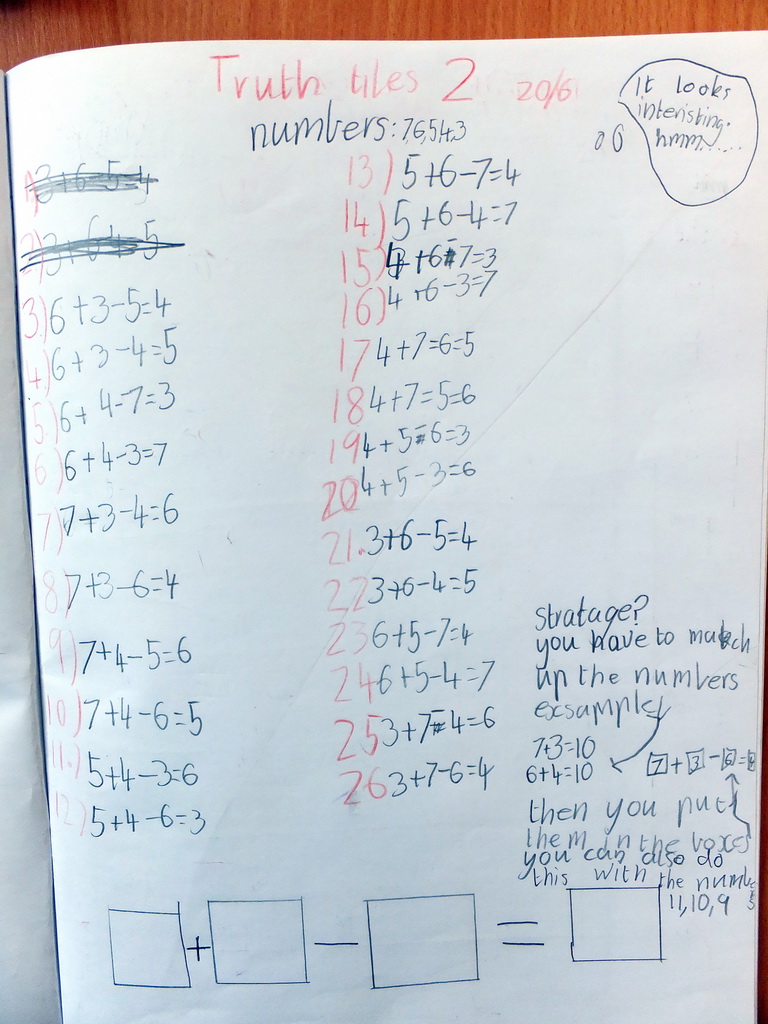 Truth tiles 2 20/6
numbers: 7,6,5,4,3
It looks
interisting.
hmm......
1) 3+6-5=4
2) 3+6-4=5
3.) 6+3-5=4
4.) 6+3-4=5
5.) 6+4-7=3
6) 6+4-3=7
7) 7+3-4=6
8) 7+3-6=4
9) 7+4-5=6
10) 7+4-6=5
11.) 5+4-3=6
12) 5+4-6=3
13) 5+6-7=4
14) 5+6-4=7
15) 4+6-7=3
16) 4+6-3=7
17 4+7=6=5
18 4+7=5=6
19 4+5-6=3
20 4+5-3=6
21. 3+6-5=4
22 3+6-4=5
23 6+5-7=4
24 6+5-4=7
25 3+7-4=6
26 3+7-6=4
stratage?
you have to match
up the numbers
exsample
7+3=10
6+4=10
7+3-6=4
then you put
them in the boxes
you can also do
this with the numbers
11,10,9
+ - =